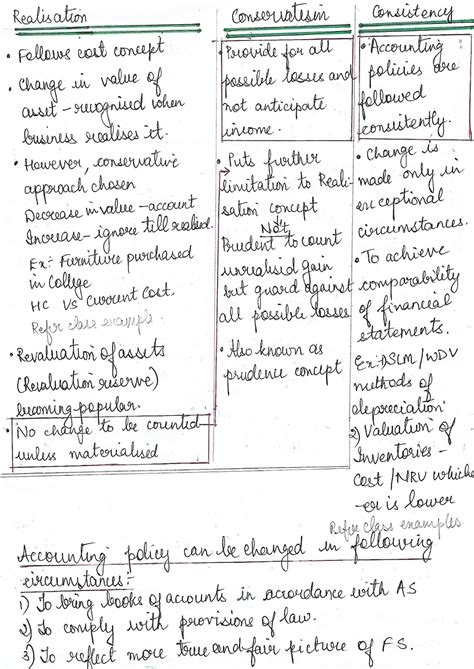 Realisation
• Follows cost concept
• Change in value of
asset - recognised when
business realises it.
• However, conservative
approach chosen
Decrease in value - account
Increase - ignore till realised.
Ex:- Furniture purchased
in College
HC VS Current Cost.
Refer class example.
• Revaluation of assets
(Revaluation reserve)
becoming popular.
• No change to be counted
unless materialised
Conservatesim
• Provide for all
possible losses and
not anticipate
income.
• Puts further
limitation to Reali-
sation concept
Not
Prudent to count
unrealisid gain
but guard against
all possible losses
• Also known as
prudence concept
Consistency
• Accounting
policies are
followed
consistently.
• Change is
made only in
exceptional
circumstances.
• To achieve
comparability
of financial
statements.
Ex:-1) SLM / WDV
methods of
depreciation
2) Valuation of
Inventories -
Cost / NRV which-
er is lower
Refer class examples
Accounting policy can be changed in following
circumstances:-
1) To bring books of accounts in accordance with AS
2) To comply with provisions of law.
3) To reflect more true and fair picture of FS.